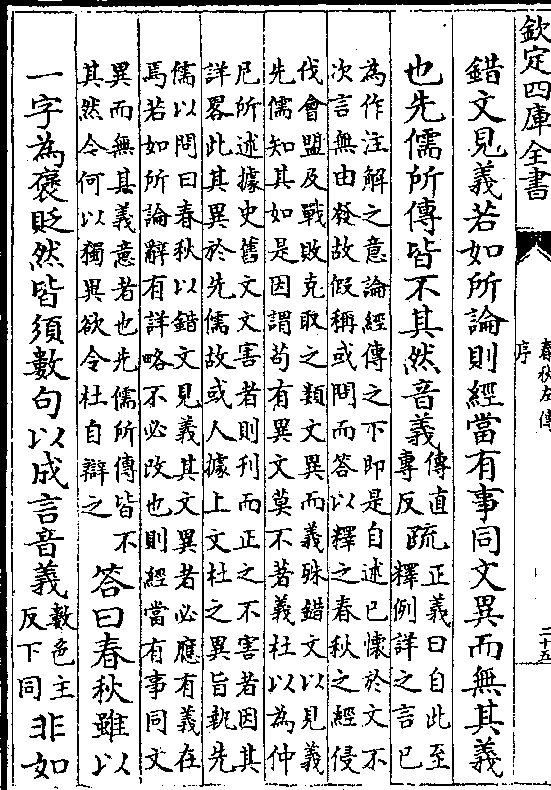 欽定四庫全書
春秋左傳
序
二十五
錯文見義若如所論則經當有事同文異而無其義
也先儒所傳皆不其然音義傳直專反疏正義曰自此至釋例詳之言已
為作注解之意論經傳之下即是自述已懷於文不
次言無由發故假稱或問而答以釋之春秋之經侵
伐會盟及戰敗克取之類文異而義殊錯文以見義
先儒知其如是因謂苟有異文莫不著義杜以為仲
尼所述據史舊文文害者則刊而正之不害者因其
詳畧此其異於先儒故或人據上文杜之異旨執先
儒以問曰春秋以錯文見義其文異者必應有義在
焉若如所論辭有詳略不必改也則經當有事同文
異而無其義意者也先儒所傳皆不
其然令何以獨異欲令杜自辯之
答曰春秋雖以
一字為褒貶然皆須數句以成言音義數色主反下同非如